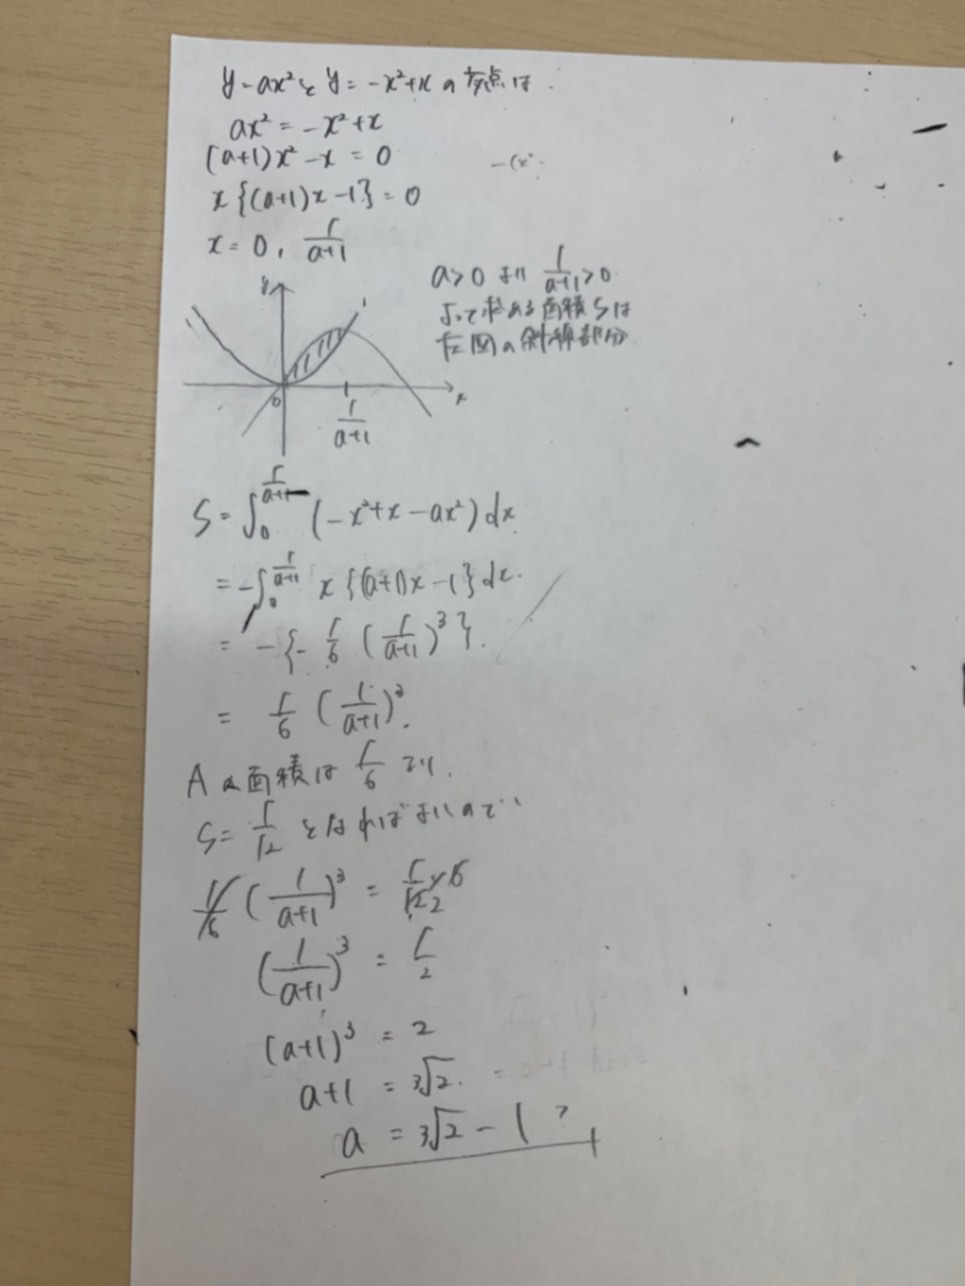 y=ax²とy=-x²+xの交点は
ax²=-x²+x
(a+1)x²-x=0
-(x²-
x{(a+1)x-1}=0
x=0, 1/(a+1)
a>0より 1/(a+1)>0
よって求める面積Sは
左図の斜線部分
y
0
x
1/(a+1)
S=∫₀^{1/(a+1)}(-x²+x-ax²)dx
=-∫₀^{1/(a+1)} x{(a+1)x-1}dx.
=-{-1/6(1/(a+1))³}.
=1/6(1/(a+1))³.
Aの面積は1/6より.
S=1/12となればよいので
1/6(1/(a+1))³=1/12×6 2
(1/(a+1))³=1/2
(a+1)³=2
a+1=³√2.
a=³√2-1